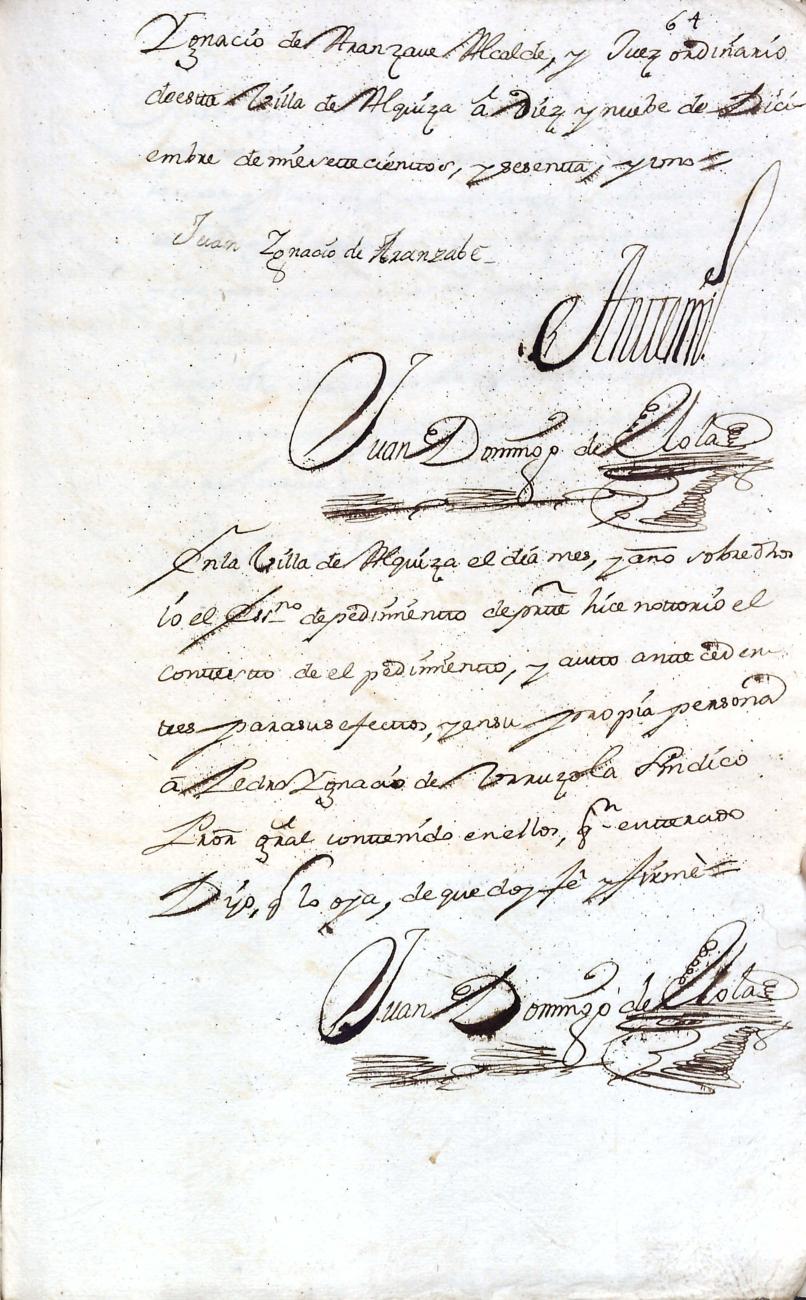 64
Ygnacio de Aranzave Alcalde, y Juez ordinario
de esta Villa de Alquiza â Diez y nuebe de Dici
embre de mil settecienttos, y sesentta, y uno =
Juan Ygnacio de Aranzabe
Antemi
Juan Domingo de
En la Villa de Alquiza el dia mes, y año sobredhos
io el Essno de pedimentto de partte hice nottorio el
conttestto de el pedimentto, y autto antteceden
ttes para sus efecttos, y en su propia persona
â Pedro Ygnacio de Yorruzola Sindico
Pror gral conttenido en ellos, qn entterado
Dijo, q lo oja, de que doy fê y firmè =
Juan Domingo de